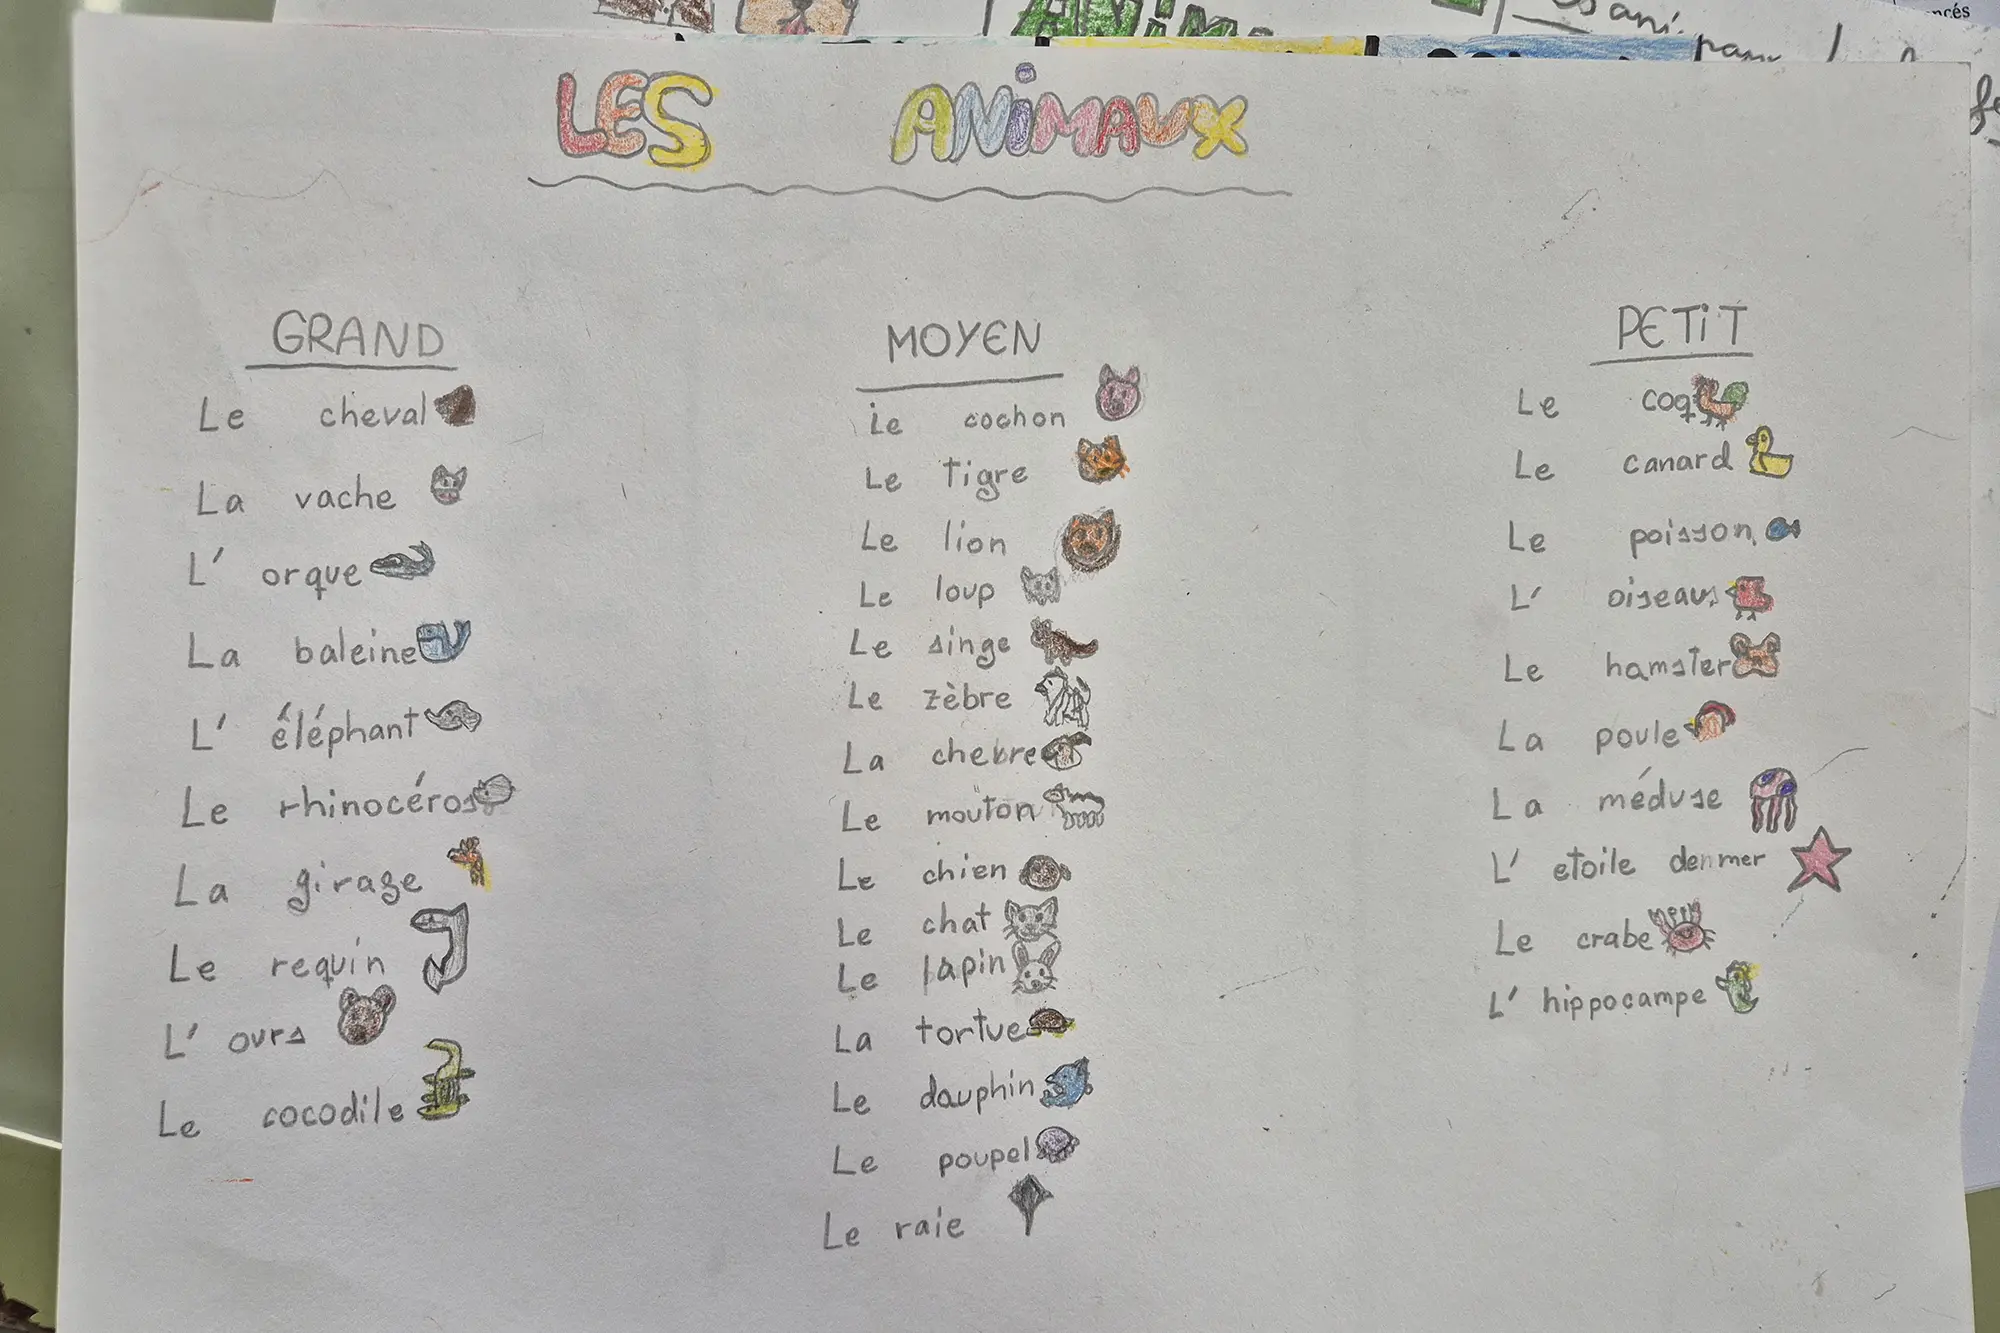 LES ANiMAUX
GRAND
Le cheval
La vache
L' orque
La baleine
L' éléphant
Le rhinocéros
La girage
Le requin
L' ours
Le cocodile
MOYEN
Le cochon
Le tigre
Le lion
Le loup
Le singe
Le zèbre
La chebre
Le mouton
Le chien
Le chat
Le lapin
La tortue
Le dauphin
Le poupel
Le raie
PETiT
Le coq
Le canard
Le poisson
L' oiseau
Le hamster
La poule
La méduse
L' etoile den mer
Le crabe
L' hippocampe